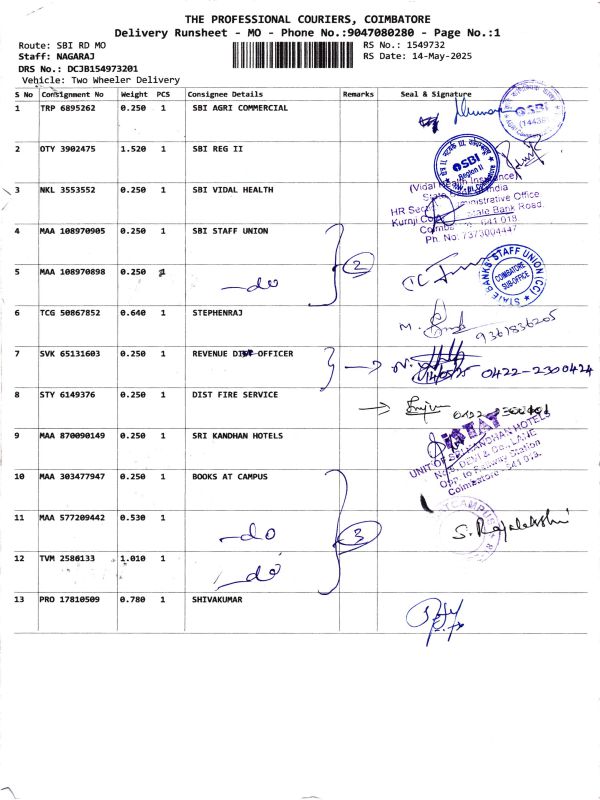 THE PROFESSIONAL COURIERS, COIMBATORE
Delivery Runsheet - MO - Phone No.:9047080280 - Page No.:1
Route: SBI RD MO
RS No.: 1549732
Staff: NAGARAJ
RS Date: 14-May-2025
DRS No.: DCJB154973201
Vehicle: Two Wheeler Delivery
S No Consignment No Weight PCS Consignee Details Remarks Seal & Signature
1 TRP 6895262 0.250 1 SBI AGRI COMMERCIAL
SBI
2 OTY 3902475 1.520 1 SBI REG II
SBI
Region II
3 NKL 3553552 0.250 1 SBI VIDAL HEALTH
(Vidal Health Insurance)
Administrative Office
State Bank Road,
641 018.
Ph. No: 7373004447
4 MAA 108970905 0.250 1 SBI STAFF UNION
2
STATE BANKS' STAFF UNION (CC)
COIMBATORE
SUB-OFFICE
5 MAA 108970898 0.250 1 -do
6 TCG 50867852 0.640 1 STEPHENRAJ
9361836205
7 SVK 65131603 0.250 1 REVENUE DIST OFFICER
0422-2300424
8 STY 6149376 0.250 1 DIST FIRE SERVICE
9 MAA 870090149 0.250 1 SRI KANDHAN HOTELS
UNIT OF SRI KANDHAN HOTELS
Opp. to Railway Station
Coimbatore - 641 018.
10 MAA 303477947 0.250 1 BOOKS AT CAMPUS
11 MAA 577209442 0.530 1 -do
3
S. Rajalakshmi
12 TVM 2586133 1.010 1 -do
13 PRO 17810509 0.780 1 SHIVAKUMAR